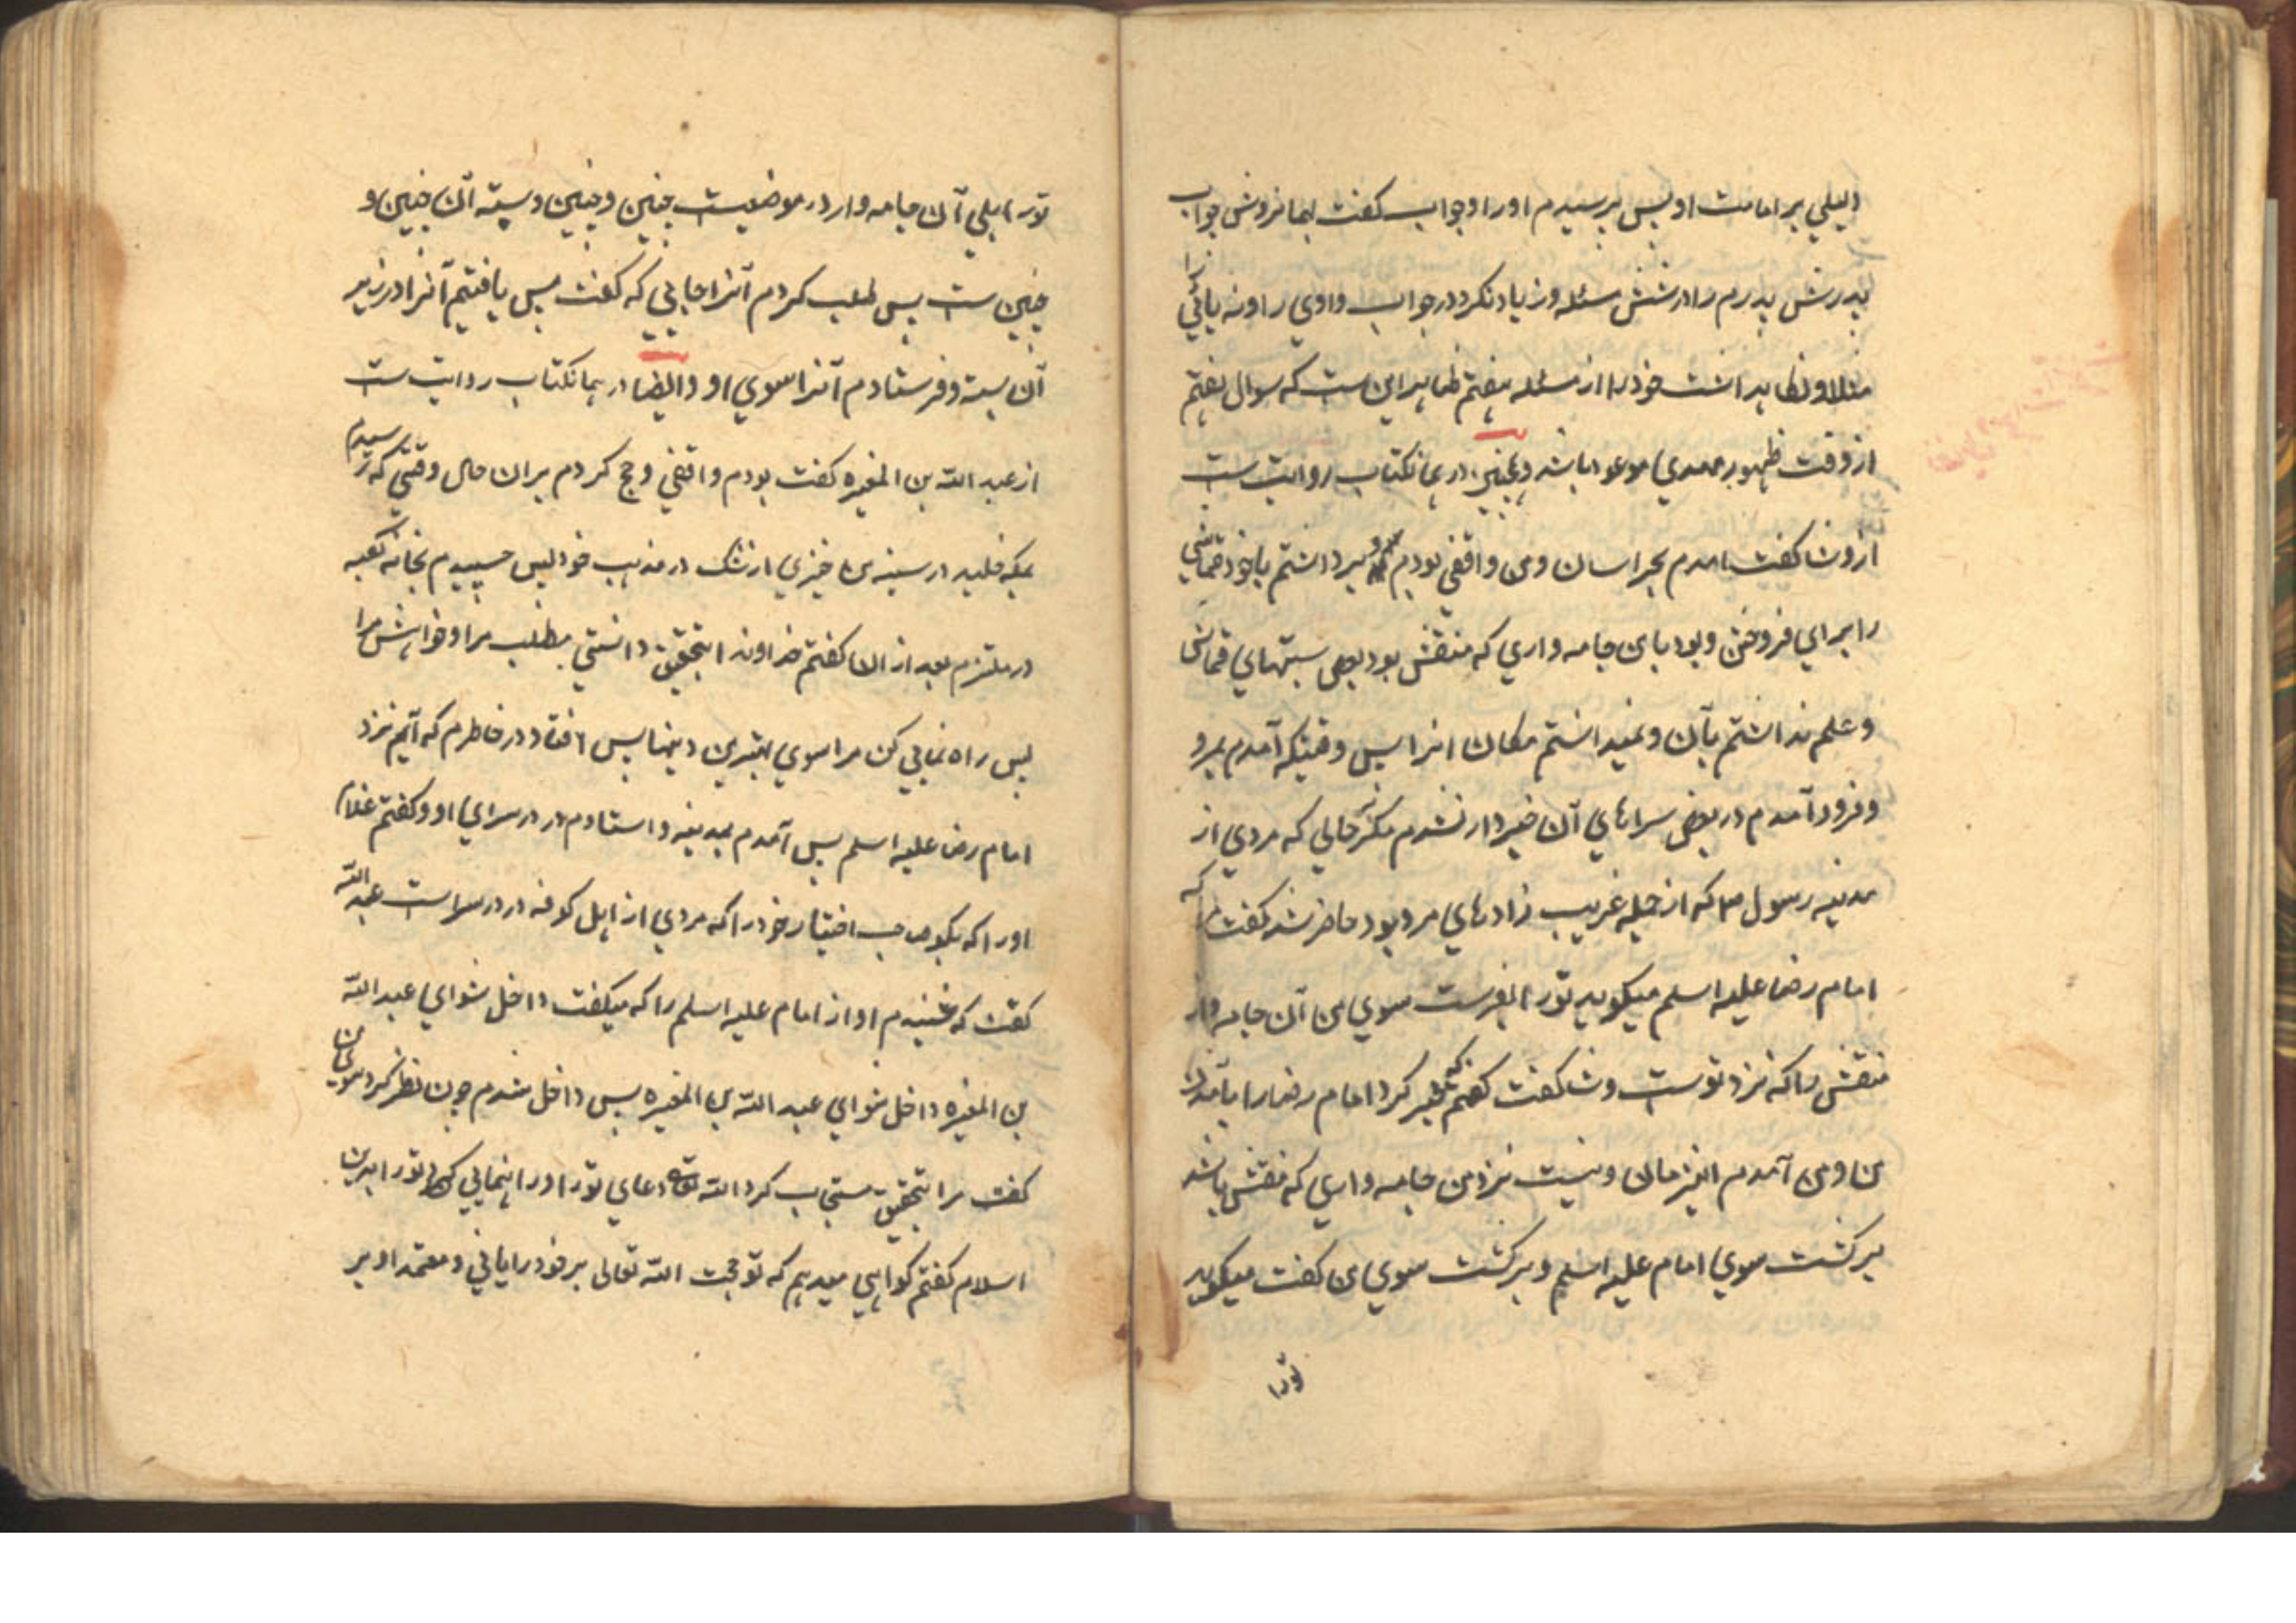 دلیلی بر امامت او پس پرسیدم او را و جواب گفت بهمان روش جواب
پدرش پدرم را در شش مسئله و زیاد نکرد در جواب واوی را و نه یائی را
مثلا و نگاهداشت خود را از مسئله هفتم ظاهر این ست که سوال هفتم
از وقت ظهور مهدی موعود باشد و همچنین در همانکتاب روایت ست
از وشا گفت امدم بخراسان و من واقفی بودم و برداشتم با خود قماشی
را برای فروختن و بود با من جامه واری که منقش بود بعض بستهای قماش
و علم نداشتم بآن و نمیدانستم مکان انرا پس وقتیکه آمدم بمرو
و فرود آمدم در بعضی سراهای آن خبردار نشدم مگر حالی که مردی از
مدینه رسول ص که از جمله غریب زادهای مرو بود حاضر شد گفت مرا که
امام رضا علیه اسلم میگوید تو را بفرست سوی من آن جامه وار
منقش را که نزد تو ست وشا گفت گفتم که خبر کرد امام رضا را بآمدن
من و من آمدم الحال و نیست نزد من جامه واری که منقش باشد
برگشت سوی امام علیه اسلم و برگشت سوی من گفت میگوید
تو را
تو را بلی آن جامه وار در موضعیست چنین و چنین و بسته آن چنین و
چنین ست پس طلب کردم آنرا جایی که گفت پس یافتیم آنرا در زیر
آن بسته و فرستادم آنرا سوی او و ایضا در همانکتاب روایت ست
از عبد الله بن المغیره گفت بودم واقفی و حج کردم بر ان حال وقتی که رسیدم
بمکه خلید در سینه من چیزی از شک در مذهب خود پس چسپیدم بخانه کعبه
در ملتزم بعد از ان گفتم خداوندا بتحقیق دانستی مطلب مرا و خواهش مرا
پس راه نمایی کن مرا سوی بهترین دینها پس افتاد در خاطرم که آیم نزد
امام رضا علیه اسلم پس آمدم بمدینه و استادم در در سرای او و گفتم غلام
او را که بگو صاحب اختیار خود را که مردی از اهل کوفه در در سراست عبد الله
گفت که شنیدم اواز امام علیه اسلم را که میگفت داخل شو ای عبد الله
بن المغیره داخل شو ای عبد الله بن المغیره پس داخل شدم چون نظر کرد سوی من
گفت مرا بتحقیق مستجاب کرد الله دعای تو را و راهنمایی کرد تو را بدین
اسلام گفتم گواهی میدهم که تو حجت الله تعالی بر خود را یانی و معتمد او بر